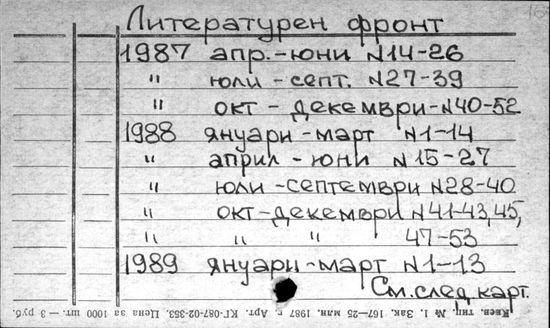 Литературен фронт
1987 апр.-юни N14-26
" юли-септ. N27-39
" окт-декември-N40-52
1988 януари-март N1-14
" април-юни N15-27
" юли-септември N28-40
" окт-декември N41-43,45,
" " " 47-53
1989 януари-март N1-13
См.след.карт.
Киев. тип. № 1. Зак. 167—25 млн. 1987 г. Арт. КГ-087-02-353. Цена за 1000 шт.— 3 руб.